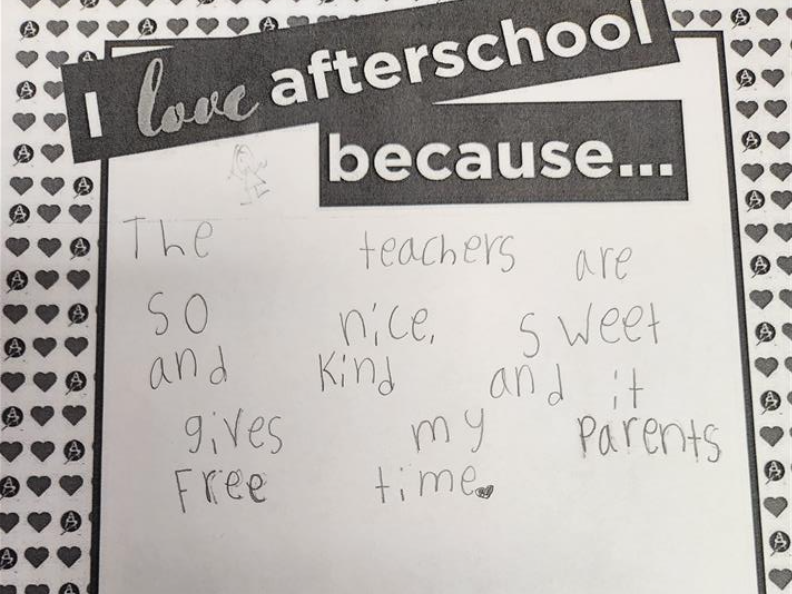 I love afterschool
because...
The teachers are
so nice, sweet
and kind and it
gives my Parents
Free time.